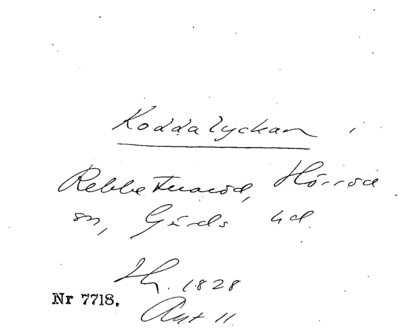 Koddalyckan
Rebbetuaröd, Hörröd
sn, Gärds hd.
1828
Nr 7718.
Akt 11.